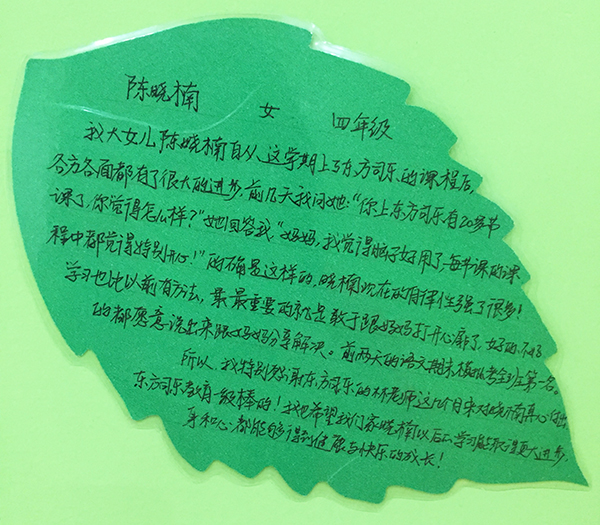 陈晓楠 女 四年级
我大女儿陈晓楠自从这学期上了东方司乐的课程后,
各方各面都有了很大的进步。前几天我问她:“你上东方司乐有20多节
课了,你觉得怎么样?”她回答我:“妈妈,我觉得脑子好用了,每节课的课
程中都觉得特别开心!”的确是这样的,晓楠现在的自律性强了很多!
学习也比以前有方法,最最重要的就是敢于跟妈妈打开心扉了,好的、不好
的都愿意说出来跟妈妈分享解决。前两天的语文期末模拟考全班第一名。
所以,我特别感谢东方司乐的林老师这几个月来对晓楠真心付出
东方司乐教育一级棒的!我也希望我们家晓楠以后学习能取得更大进步,
身和心都能够得到健康与快乐的成长!